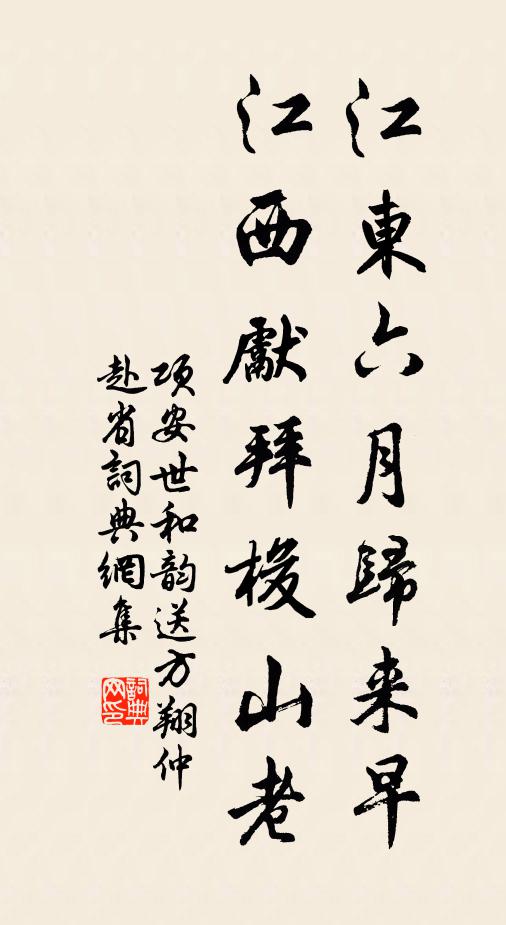 江東六月歸来早
江西獻拜梭山老
项安世和韵送方翔仲
赴省詞典網集
詞典网印